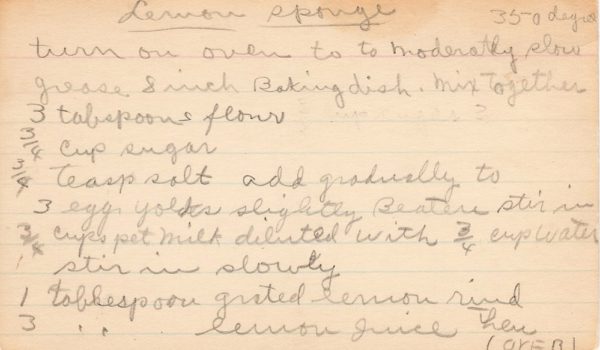 Lemon sponge
350 degre
turn on oven to to moderatly slow
grease 8 inch Baking dish. Mix together
3 tabspoons flour
3/4 cup sugar
3/4 teasp salt add gradually to
3 egg yolks slightly Beaten stir in
3/4 cups pet milk diluted with 3/4 cup water
stir in slowly
1 tablespoon grated lemon rind
3 " " lemon juice then
(OVER)